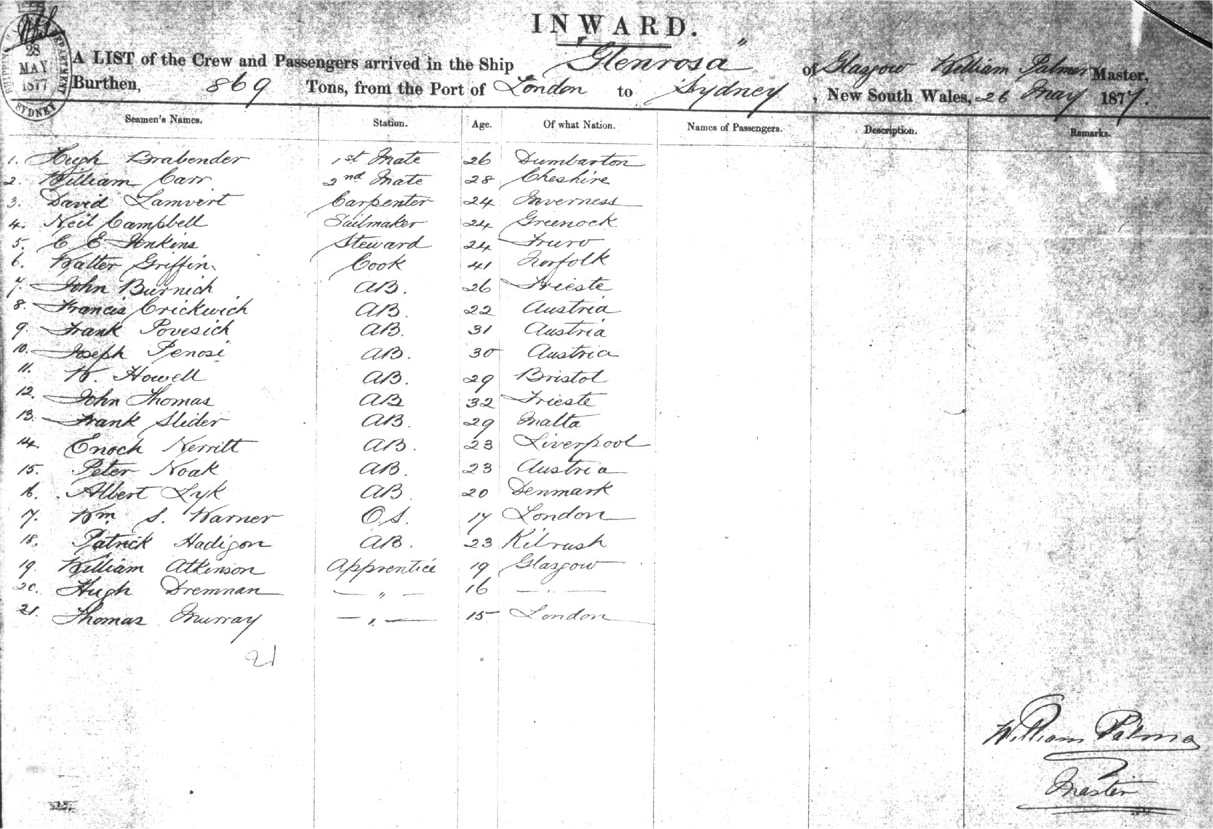 INWARD.
28 MAY 1877
SYDNEY
A LIST of the Crew and Passengers arrived in the Ship "Glenrosa" of Glasgow William Palmer Master,
Burthen, 869 Tons, from the Port of London to Sydney, New South Wales, 26 May 1877.
Seamen's Names. Station. Age. Of what Nation. Names of Passengers. Description. Remarks.
1. Hugh Brabender 1st Mate 26 Dumbarton
2. William Carr 2nd Mate 28 Cheshire
3. David Lamvert Carpenter 24 Inverness
4. Neil Campbell Sailmaker 24 Greenock
5. C E Jenkins Steward 24 Truro
6. Walter Griffin. Cook 41 Norfolk
7. John Burnich AB. 26 Trieste
8. Francis Crickwich AB. 22 Austria
9. Frank Povesich AB. 31 Austria
10. Joseph Penosi AB. 30 Austria
11. W. Howell AB. 29 Bristol
12. John Thomas AB 32 Trieste
13. Frank Slider AB. 29 Malta
14. Enoch Kerritt AB. 23 Liverpool
15. Peter Noak AB. 23 Austria
16. Albert Lyk AB. 20 Denmark
17. Wm. S. Warner O.S. 17 London
18. Patrick Hadigon AB. 23 Kilrush
19. William Atkinson Apprentice 19 Glasgow
20. Hugh Dremnan — " — 16 — " —
21. Thomas Murray — " — 15 London
21
William Palmer
Master